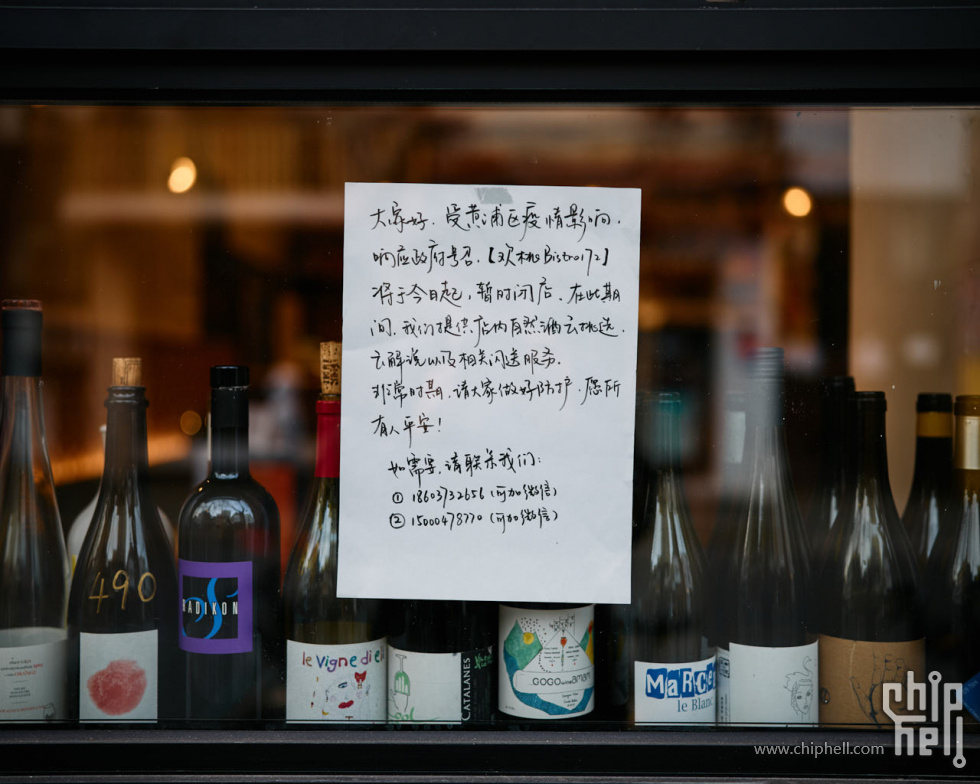 大家好，受黄浦区疫情影响，
响应政府号召，【欢桃Bistro172】
将于今日起，暂时闭店，在此期
间，我们提供店内自然酒云挑选，
云解说以及相关闪送服务。
非常时期，请大家做好防护，愿所
有人平安！
如需要，请联系我们：
① 18603732656（可加微信）
② 15000478770（可加微信）
490
RADIKON
le Vigne di
CATALANES
GOGO wine amami
Marcel
le Blanc
chip
hell
www.chiphell.com